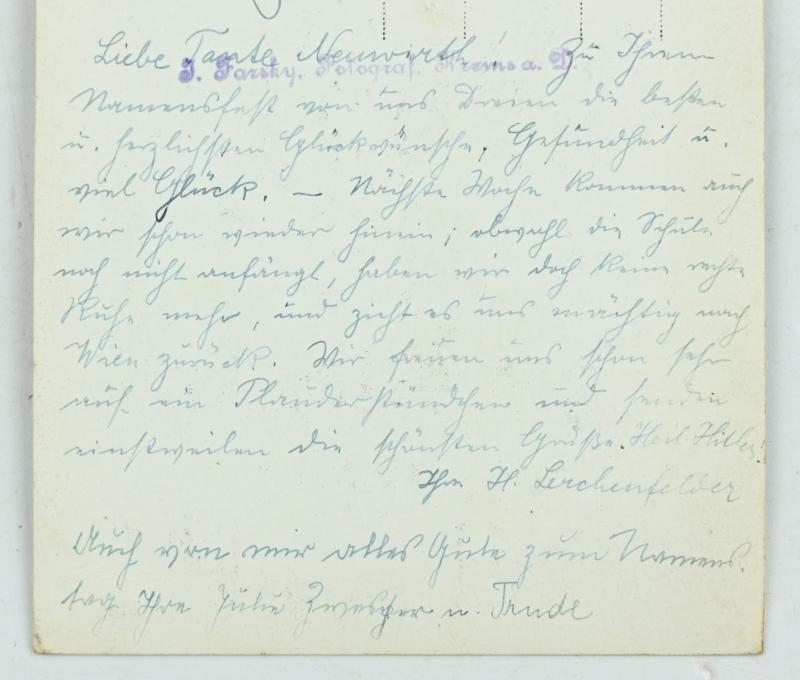 Liebe Tante Neuwirth! Zu Ihrem
J. Farsky, Fotograf, Krems a. D.
Namensfest von uns Dreien die besten
u. herzlichsten Glückwünsche, Gesundheit u.
viel Glück. — Nächste Woche kommen auch
wir schon wieder hinein; obwohl die Schule
noch nicht anfängt, haben wir doch keine rechte
Ruhe mehr, und zieht es uns mächtig nach
Wien zurück. Wir freuen uns schon sehr
auf ein Plauderstündchen und senden
einstweilen die schönsten Grüße. Heil Hitler!
Ihre H. Lerchenfelder
Auch von mir alles Gute zum Namens-
tag Ihre Julie u. Trude